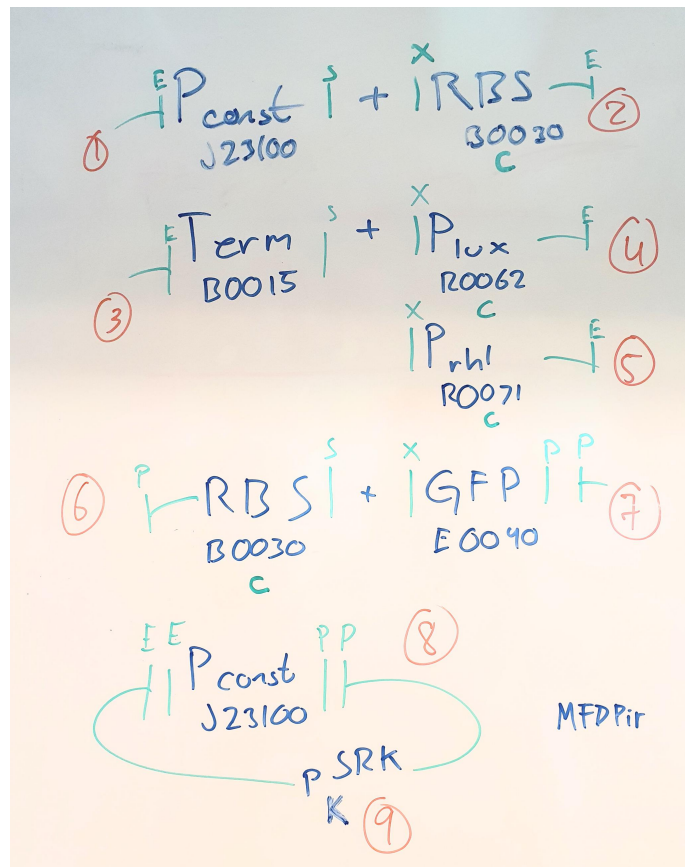 E Pconst S + X RBS E
① J23100 B0030 ②
C
E Term S + X Plux E
③ B0015 R0062 ④
C
X Prhl E
R0071 ⑤
C
⑥ P RBS S + X GFP P P ⑦
B0030 E0040
C
E E Pconst P P ⑧
J23100
MFDPir
pSRK
K ⑨